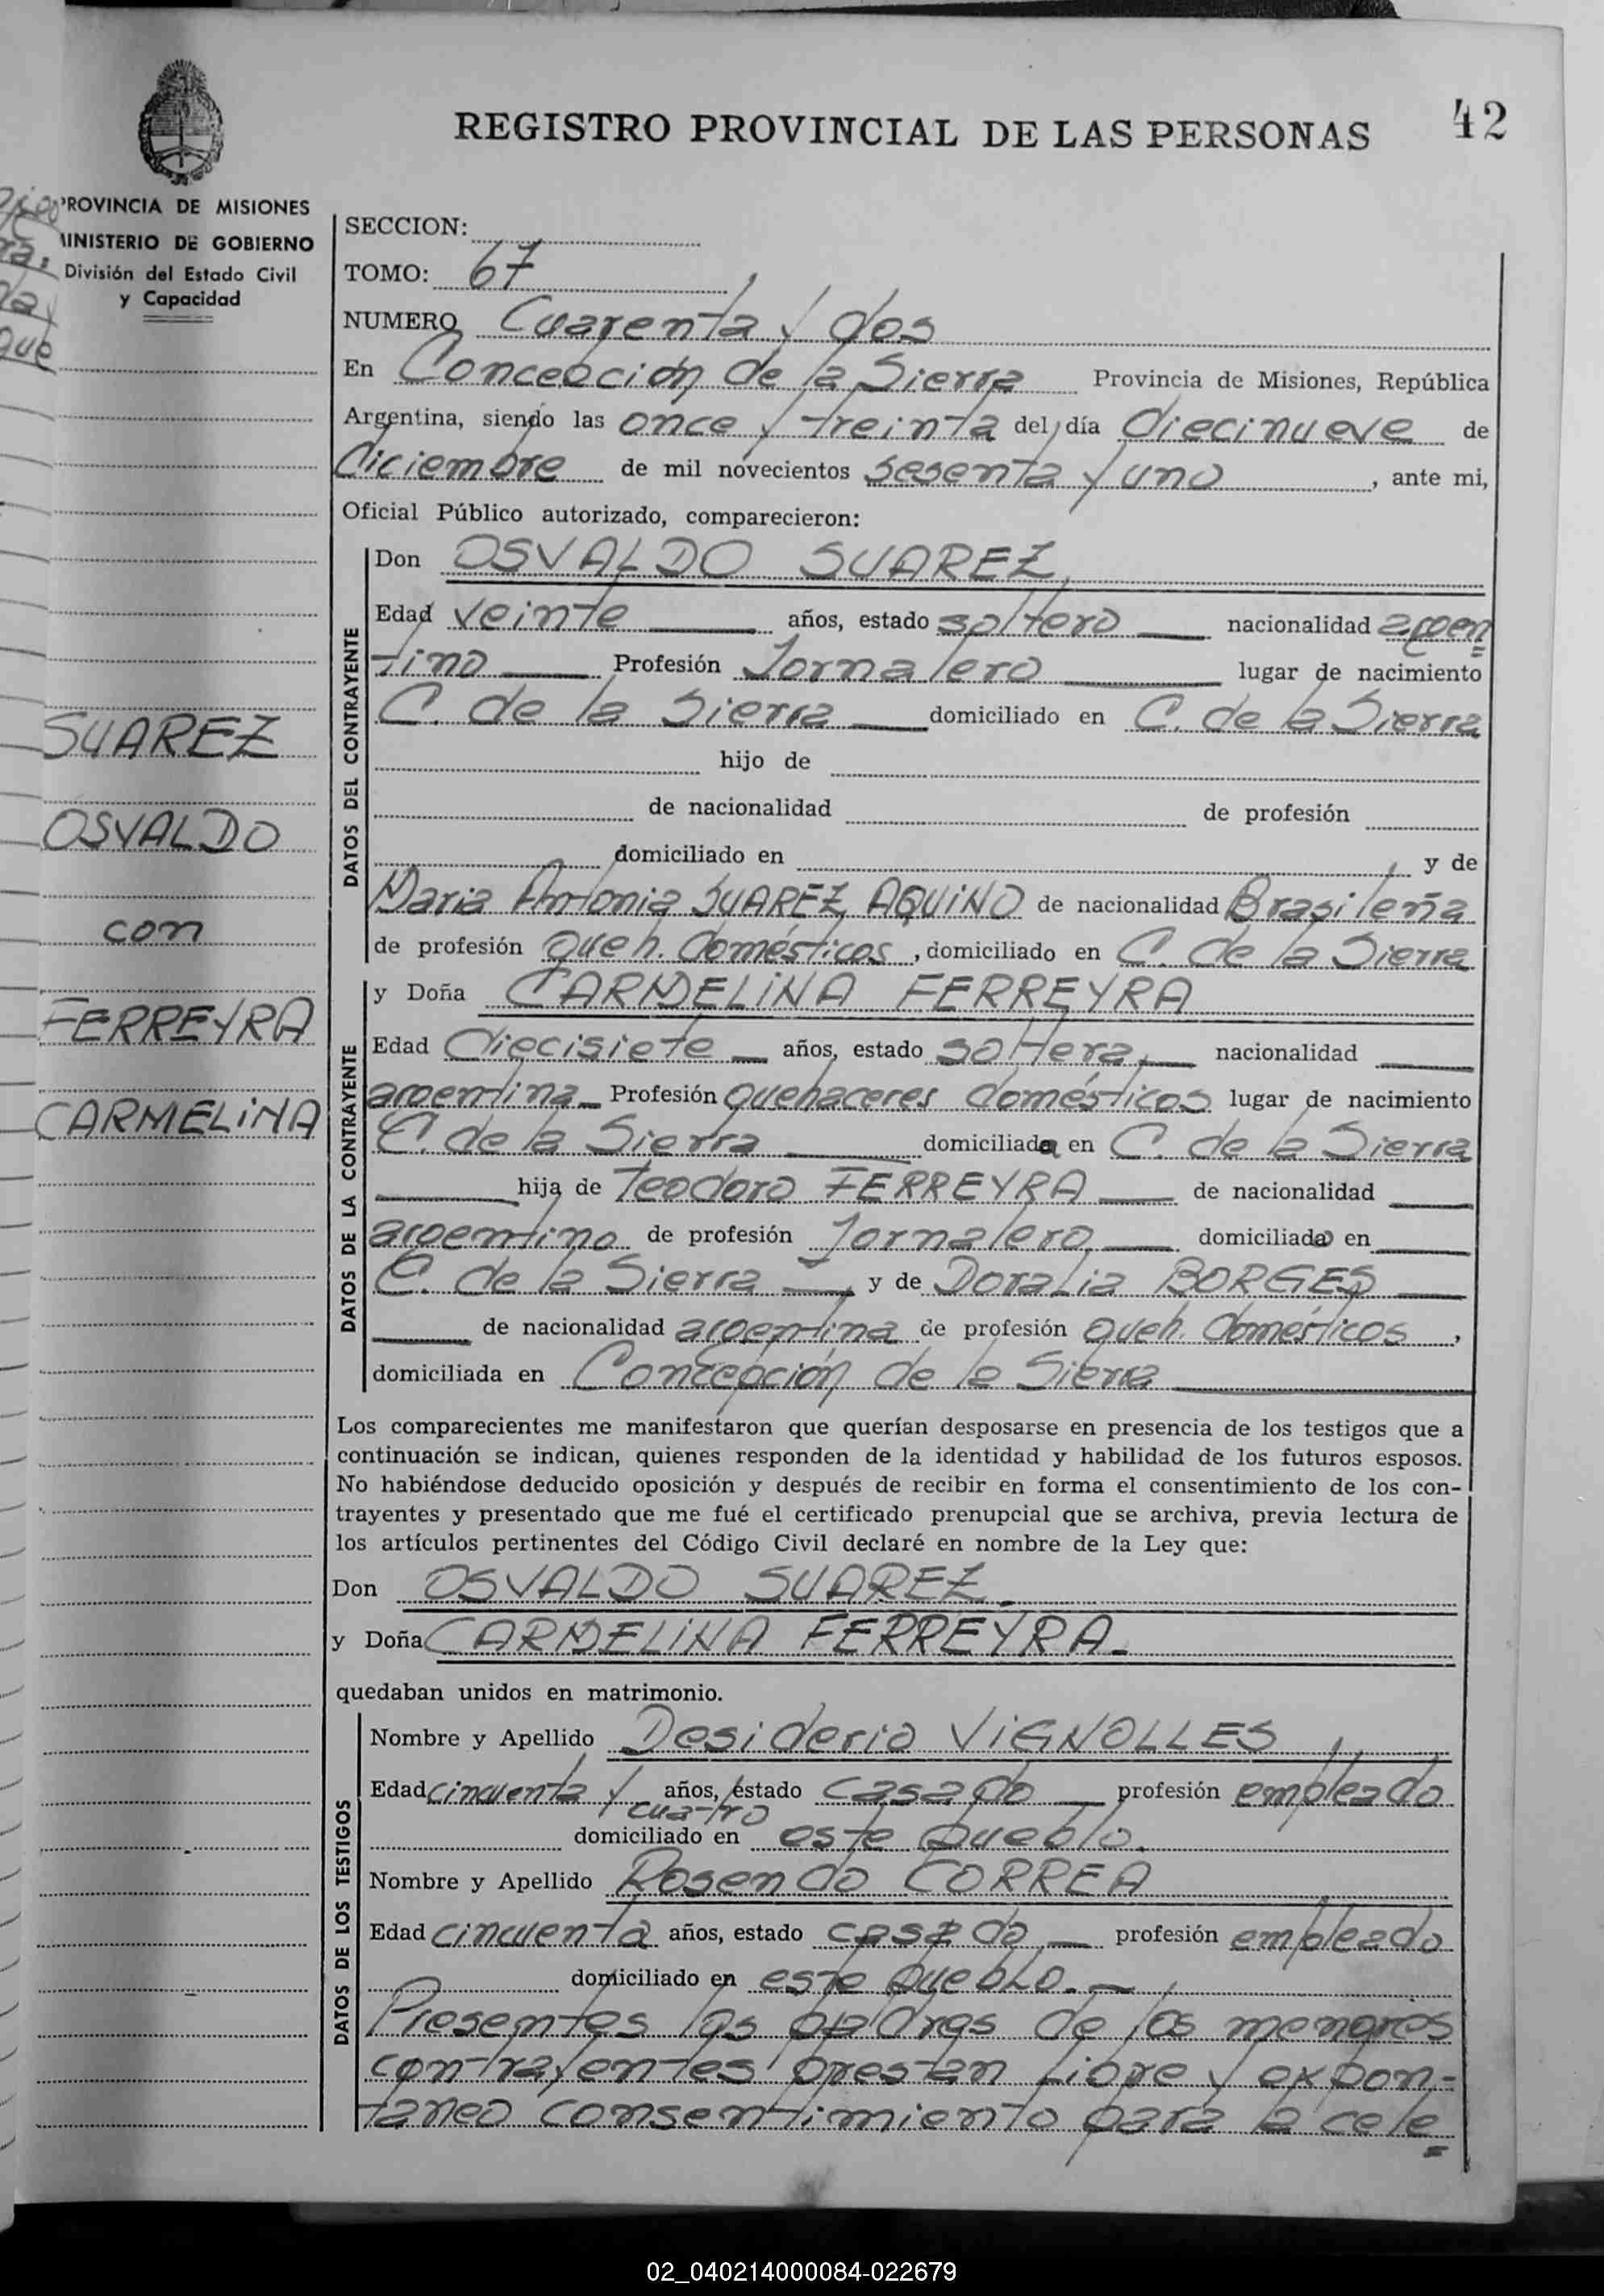 42
REGISTRO PROVINCIAL DE LAS PERSONAS
PROVINCIA DE MISIONES
MINISTERIO DE GOBIERNO
División del Estado Civil
y Capacidad
que
SUAREZ
OSVALDO
con
FERREYRA
CARMELINA
SECCION:
TOMO: 67
NUMERO Cuarenta y dos
En Concepción de la Sierra Provincia de Misiones, República
Argentina, siendo las once y treinta del día diecinueve de
diciembre de mil novecientos sesenta y uno, ante mi,
Oficial Público autorizado, comparecieron:
DATOS DEL CONTRAYENTE
Don OSVALDO SUAREZ,
Edad veinte años, estado soltero nacionalidad argen=
tino Profesión Jornalero lugar de nacimiento
C. de la Sierra domiciliado en C. de la Sierra
hijo de
de nacionalidad de profesión
domiciliado en y de
Maria Antonia SUAREZ AQUINO de nacionalidad Brasileña
de profesión queh. domésticos, domiciliado en C. de la Sierra
DATOS DE LA CONTRAYENTE
y Doña CARMELINA FERREYRA
Edad diecisiete años, estado soltera, nacionalidad
argentina Profesión quehaceres domésticos lugar de nacimiento
C. de la Sierra domiciliada en C. de la Sierra
hija de Teodoro FERREYRA de nacionalidad
argentino de profesión Jornalero, domiciliado en
C. de la Sierra y de Doralia BORGES
de nacionalidad argentina de profesión queh. domésticos,
domiciliada en Concepción de la Sierra
Los comparecientes me manifestaron que querían desposarse en presencia de los testigos que a
continuación se indican, quienes responden de la identidad y habilidad de los futuros esposos.
No habiéndose deducido oposición y después de recibir en forma el consentimiento de los con-
trayentes y presentado que me fué el certificado prenupcial que se archiva, previa lectura de
los artículos pertinentes del Código Civil declaré en nombre de la Ley que:
Don OSVALDO SUAREZ.
y Doña CARMELINA FERREYRA
quedaban unidos en matrimonio.
DATOS DE LOS TESTIGOS
Nombre y Apellido Desiderio ViGNOLLES
Edad cincuenta y cuatro años, estado casado profesión empleado
domiciliado en este pueblo.
Nombre y Apellido Rosendo CORREA
Edad cincuenta años, estado casado profesión empleado
domiciliado en este pueblo.
Presentes los padres de los menores
contrayentes prestan libre y expon-
taneo consentimiento para la cele=
02_040214000084-022679